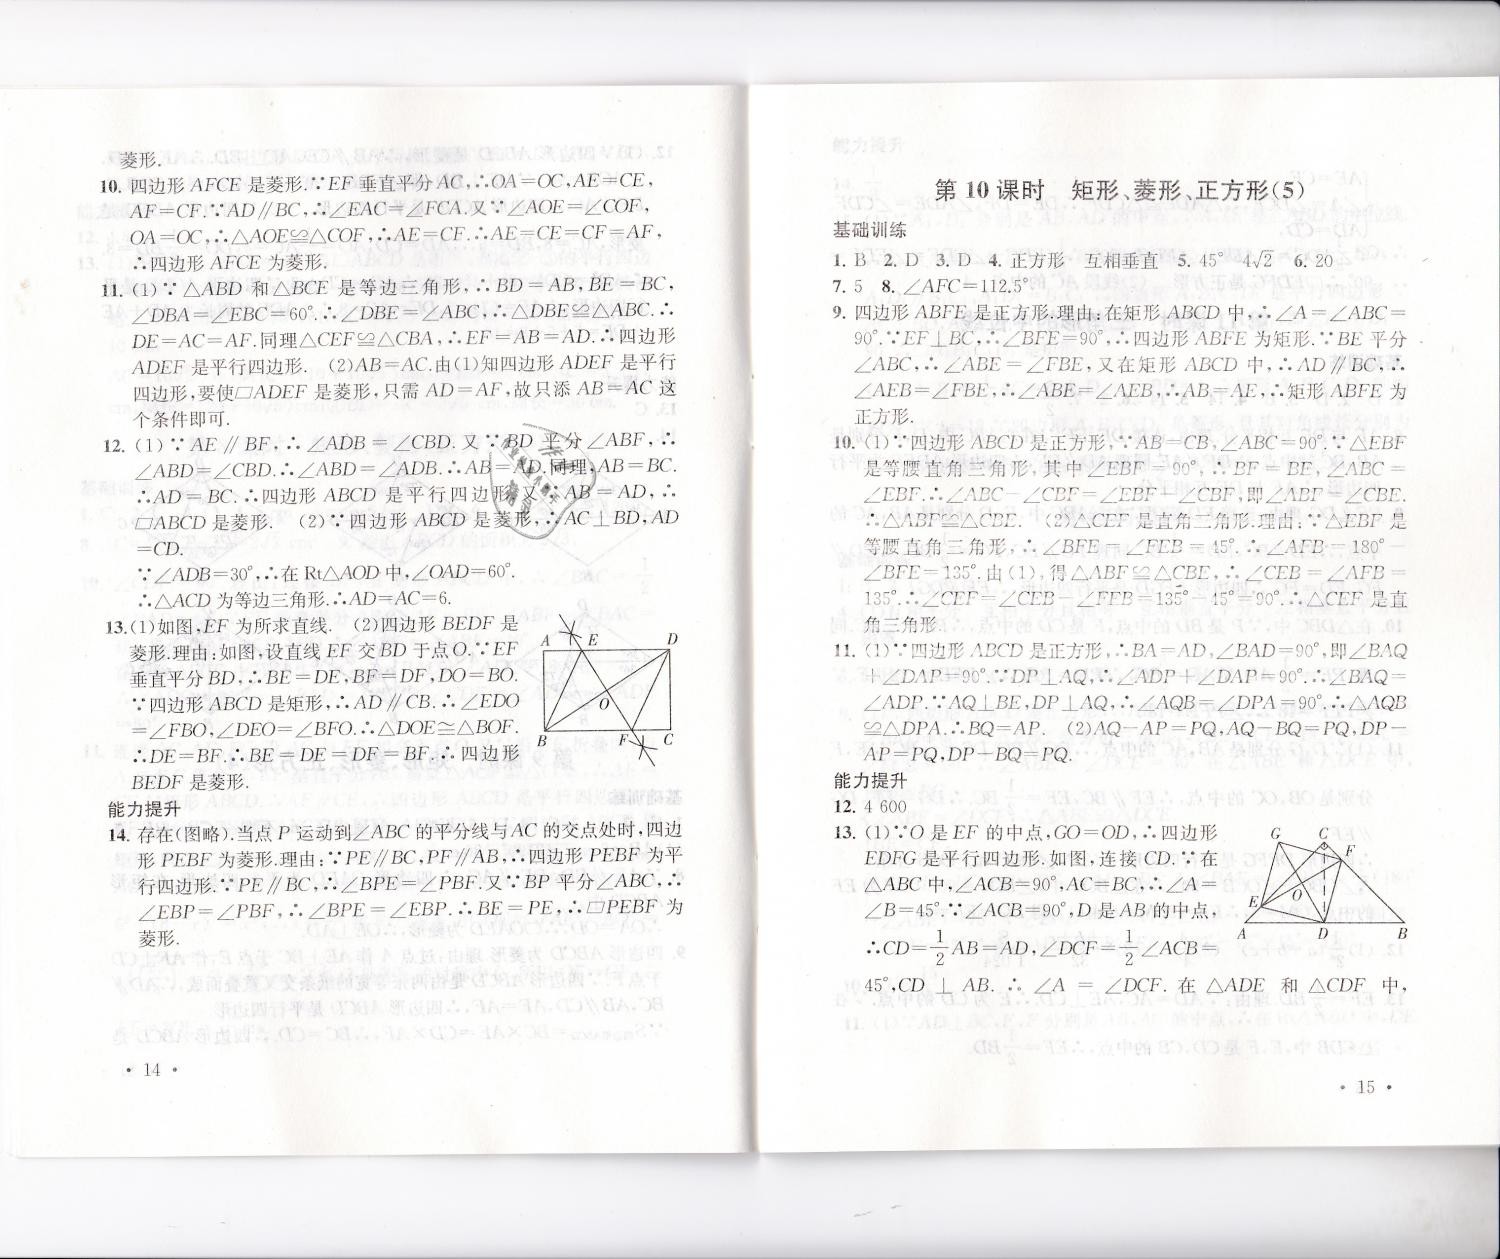 菱形.
10. 四边形 AFCE 是菱形.∵EF 垂直平分 AC,∴OA=OC,AE=CE,
AF=CF.∵AD∥BC,∴∠EAC=∠FCA.又∵∠AOE=∠COF,
OA=OC,∴△AOE≌△COF,∴AE=CF.∴AE=CE=CF=AF,
∴四边形 AFCE 为菱形.
11. (1)∵△ABD 和△BCE 是等边三角形,∴BD=AB,BE=BC,
∠DBA=∠EBC=60°.∴∠DBE=∠ABC,∴△DBE≌△ABC.∴
DE=AC=AF.同理△CEF≌△CBA,∴EF=AB=AD.∴四边形
ADEF 是平行四边形. (2)AB=AC.由(1)知四边形 ADEF 是平行
四边形,要使□ADEF 是菱形,只需 AD=AF,故只添 AB=AC 这
个条件即可.
12. (1)∵AE∥BF,∴∠ADB=∠CBD.又∵BD 平分∠ABF,∴
∠ABD=∠CBD.∴∠ABD=∠ADB.∴AB=AD.同理,AB=BC.
∴AD=BC.∴四边形 ABCD 是平行四边形.又∵AB=AD,∴
□ABCD 是菱形. (2)∵四边形 ABCD 是菱形,∴AC⊥BD,AD
=CD.
∵∠ADB=30°,∴在 Rt△AOD 中,∠OAD=60°.
∴△ACD 为等边三角形.∴AD=AC=6.
13. (1)如图,EF 为所求直线. (2)四边形 BEDF 是
菱形.理由:如图,设直线 EF 交 BD 于点 O.∵EF
垂直平分 BD,∴BE=DE,BF=DF,DO=BO.
∵四边形 ABCD 是矩形,∴AD∥CB.∴∠EDO
=∠FBO,∠DEO=∠BFO.∴△DOE≌△BOF.
∴DE=BF.∴BE=DE=DF=BF.∴四边形
BEDF 是菱形.
A E D
O
B F C
能力提升
14. 存在(图略).当点 P 运动到∠ABC 的平分线与 AC 的交点处时,四边
形 PEBF 为菱形.理由:∵PE∥BC,PF∥AB,∴四边形 PEBF 为平
行四边形.∵PE∥BC,∴∠BPE=∠PBF.又∵BP 平分∠ABC,∴
∠EBP=∠PBF,∴∠BPE=∠EBP.∴BE=PE,∴□PEBF 为
菱形.
• 14 •
第 10 课时 矩形、菱形、正方形(5)
基础训练
1. B 2. D 3. D 4. 正方形 互相垂直 5. 45° 4√2 6. 20
7. 5 8. ∠AFC=112.5°
9. 四边形 ABFE 是正方形.理由:在矩形 ABCD 中,∴∠A=∠ABC=
90°.∵EF⊥BC,∴∠BFE=90°,∴四边形 ABFE 为矩形.∵BE 平分
∠ABC,∴∠ABE=∠FBE,又在矩形 ABCD 中,∴AD∥BC,∴
∠AEB=∠FBE,∴∠ABE=∠AEB,∴AB=AE,∴矩形 ABFE 为
正方形.
10. (1)∵四边形 ABCD 是正方形,∵AB=CB,∠ABC=90°.∵△EBF
是等腰直角三角形,其中∠EBF=90°,∴BF=BE,∠ABC=
∠EBF.∴∠ABC-∠CBF=∠EBF-∠CBF,即∠ABF=∠CBE.
∴△ABF≌△CBE. (2)△CEF 是直角三角形.理由:∵△EBF 是
等腰直角三角形,∴∠BFE=∠FEB=45°.∴∠AFB=180°-
∠BFE=135°.由(1),得△ABF≌△CBE,∴∠CEB=∠AFB=
135°.∴∠CEF=∠CEB-∠FEB=135°-45°=90°.∴△CEF 是直
角三角形.
11. (1)∵四边形 ABCD 是正方形,∴BA=AD,∠BAD=90°,即∠BAQ
+∠DAP=90°.∵DP⊥AQ,∴∠ADP+∠DAP=90°.∴∠BAQ=
∠ADP.∵AQ⊥BE,DP⊥AQ,∴∠AQB=∠DPA=90°.∴△AQB
≌△DPA.∴BQ=AP. (2)AQ-AP=PQ,AQ-BQ=PQ,DP-
AP=PQ,DP-BQ=PQ.
能力提升
12. 4 600
13. (1)∵O 是 EF 的中点,GO=OD,∴四边形
EDFG 是平行四边形.如图,连接 CD.∵在
△ABC 中,∠ACB=90°,AC=BC,∴∠A=
∠B=45°.∵∠ACB=90°,D 是 AB 的中点,
∴CD=1/2 AB=AD,∠DCF=1/2∠ACB=
45°,CD⊥AB.∴∠A=∠DCF.在△ADE 和△CDF 中,
G C F
E O
A D B
• 15 •